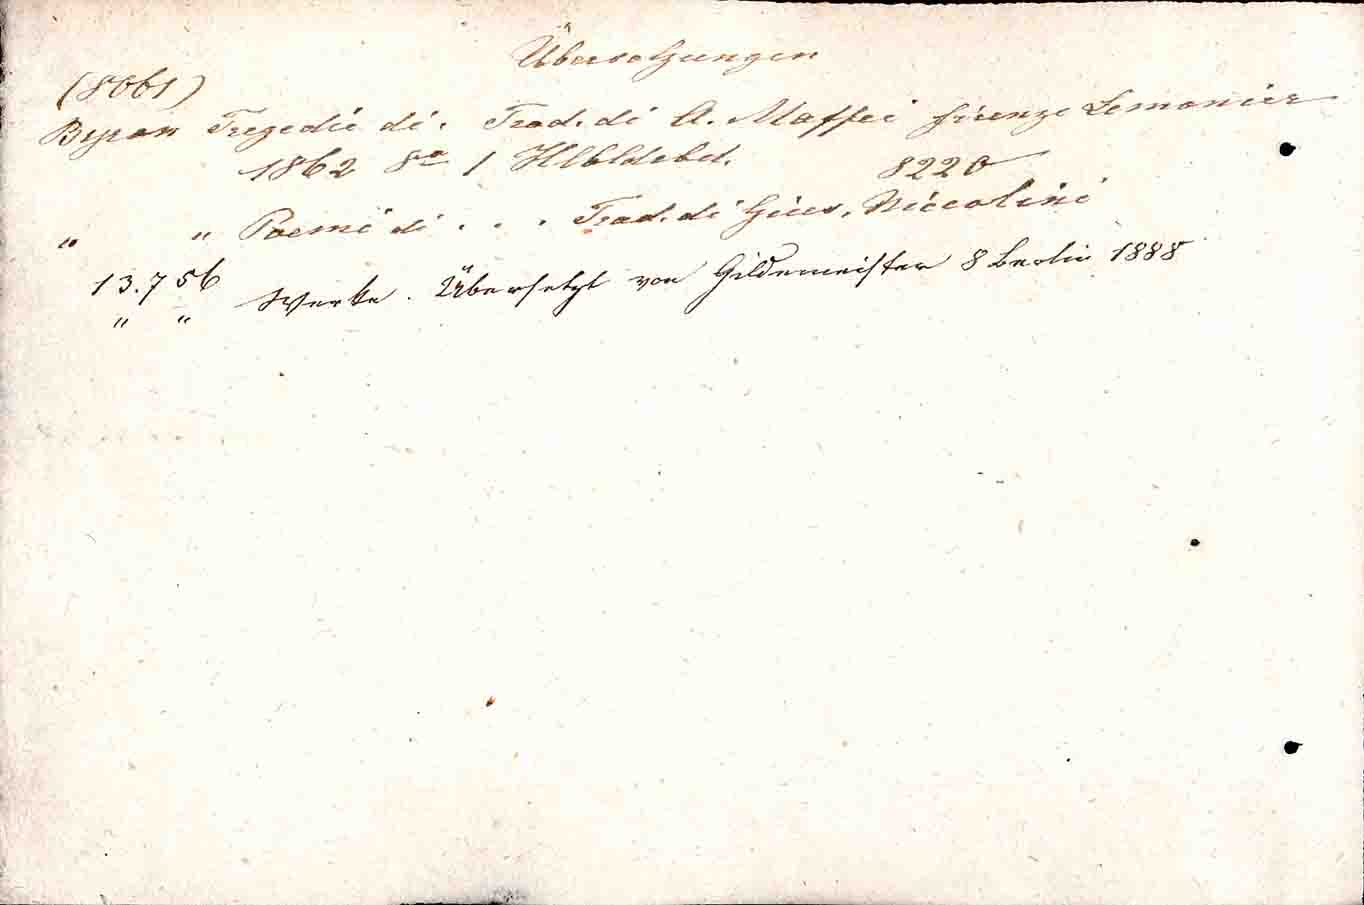 Übersetzungen
(8061)
Byron Tregedie di. Trad. di A. Maffei Firenze Lemonier
1862 8o 1 Hlbldebd. 8220
" " Poemi di . . . Trad. di Gius. Niccolini
13.756 Werke. Übersetzt von Gildemeister 8 Berlin 1888
" "